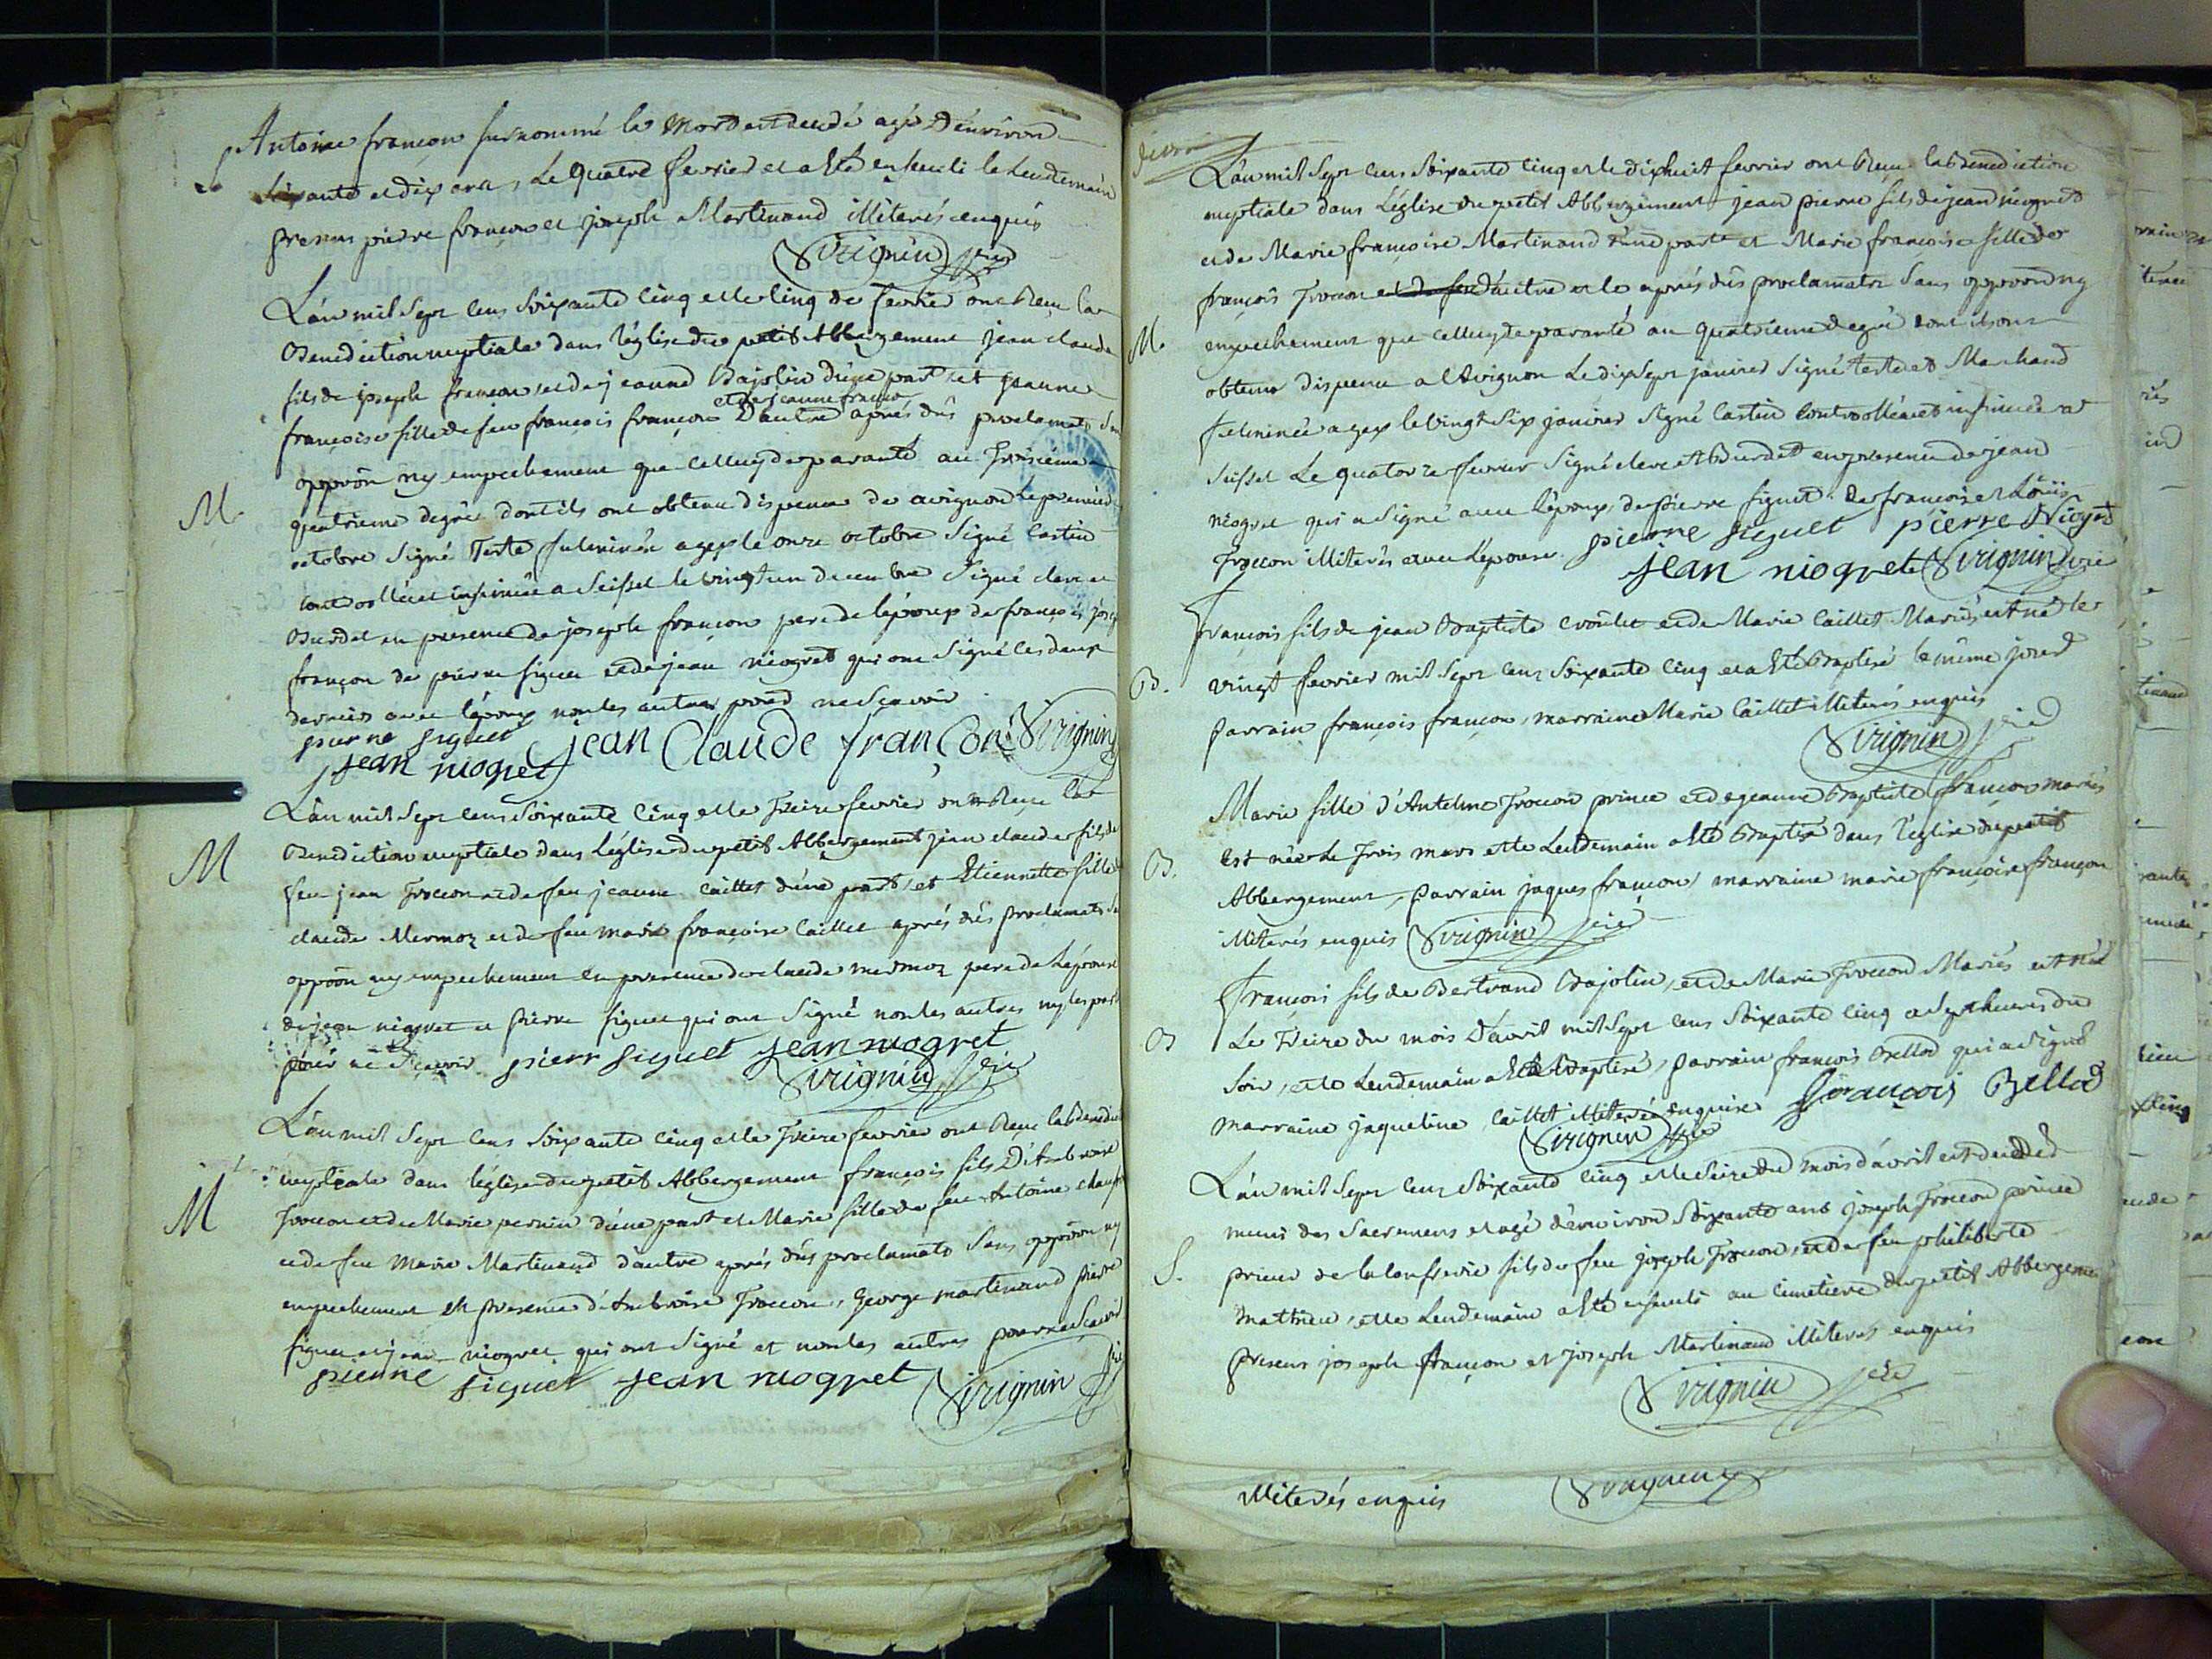 Antoine françon surnommé le Mord est decedé agé D'environ
S
soixante et dix ans, Le quatre fevrier et a Eté enseveli le Lendemain
presens pierre françon et joseph Martinand illiterés enquis
Virignin
L'an mil Sept cens Soixante cinq et le cinq de fevrier ont Reçu la
Benediction nuptiale dans l'église du petit Abbergement jean claude
fils de joseph françon et de jeanne Bajolin d'une part et jeanne
et de jeanne franço
françoise fille de feu françois françon D'autre aprés dûs proclamats
oppoôn ny empechement que celluy de paranté au troisiéme
M.
quatrieme degré dont ils ont obtenu dispense de avignon le premier
octobre Signé Teste fulminée a gex le onze octobre Signé Castin
controllée et insinuée a Seissel le vingt un decembre Signé clerc et
Burdet en presence de joseph françon pere de l'époux de françois
françon de pierre siguet et de jean niogret qui ont Signé les deux
derniers avec l'époux non les autres pour ne Sçavoir
pierre siguet jean Claude françon Virignin
jean niogret
L'an mil Sept cens Soixante cinq et le treize fevrier ont Reçu la
M
Benediction nuptiale dans l'église du petit Abbergement jean claude fils de
feu jean troccon et de feu jeanne caillet d'une part, et Etiennette fille
claude Mermoz et de feu marie françoise caillet aprés dûs proclamats
oppoôn ny empechement en presence de claude mermoz pere de l'épouse
de jean niogret et pierre siguet qui ont Signé non les autres ny les part
pour ne Sçavoir pierr siguet jean niogret
Virignin
L'an mil Sept cens Soixante cinq et le treize fevrier ont Reçu la Benedict
nuptiale dans l'église du petit Abbergement françois fils D'Ambroise
M
troccon et de Marie pernin d'une part et Marie fille de feu Antoine
et de feu Marie Martinand d'autre aprés dûs proclamats Sans oppoôn ny
empechement en presence d'Ambroise troccon, George martinand pierre
siguet et jean niogret qui ont Signé et non les autres pour ne Sçavoir
pierre siguet jean niogret Virignin
L'an mil Sept cens Soixante cinq et le dixhuit fevrier ont Reçu la Benediction
nuptiale dans l'église du petit Abbergement jean pierre fils de jean niogret
et de Marie françoise Martinand d'une parte et Marie françoise fille de
françois troccon et de feu d'autre aprés dûs proclamats Sans oppoôn ny
M.
empechement que celluy de paranté au quatrieme degré dont ils ont
obtenu dispense a l'Avignon Le dix Sept janvier Signé teste et Marchand
fulminée a gex le vingt Six janvier Signé Castin controllée et insinuée a
Seissel Le quatorze fevrier Signé clerc et Burdet en presence de jean
niogret qui a Signé avec l'époux, de pierre siguet de françois et Loüis
troccon illiterés avec l'épouse pierre siguet pierre Niogret
jean niogret Virignin
françois fils de jean Baptiste et de Marie Caillet Mariés est né le
B.
vingt fevrier mil Sept cens Soixante cinq et a Eté Baptisé le même jour
parrain françois françon, marraine Marie Caillet illiterés enquis
Virignin
Marie fille d'Antelme troccon prince et de jeanne Baptiste françon mariés
est née Le trois mars et le Lendemain a Eté Baptisé dans l'église du petit
B.
Abbergement, parrain jaques françon marraine marie françoise françon
illiterés enquis Virignin
françois fils de Bertrand Bajolin, et de Marie troccon Mariés est né
B
Le treize du mois D'avril mil Sept cens Soixante cinq a Sept heures du
Soir, et le Lendemain a Eté Baptisé, parrain françois Bellod qui a Signé
marraine jaqueline caillet illiterée enquise françois Bellod
Virignin
L'an mil Sept cens Soixante cinq et le Seize du mois d'avril est decedé
muni des Sacremens et agé d'environ Soixante ans joseph troccon prince
prieur de la confrerie fils de feu joseph troccon, et de feu philiberte
S.
Matthieu, et le Lendemain a Eté enseveli au cimetiere du petit Abbergement
presens joseph françon et joseph Martinand illiterés enquis
Virignin
illiterés enquis Virignin